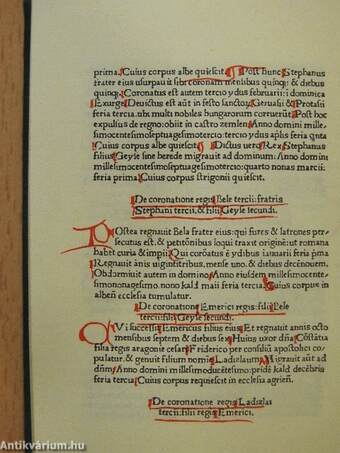 prima. Cuius corpus albe quiescit. Post hunc Stephanus
frater eius usurpauit sibi coronam mensibus quinqz & diebus
quinqz. Coronatus est autem tercio ydus februarii: dominica
Exurge. Deuictus est aūt in festo sanctoꝝ Geruasii & Protasii
feria tercia. ubi multi nobiles hungarorum corruerūt. Post hoc
expulsus de regno: obiit in castro zemlen. Anno domini mille-
simocentesimoseptuagesimotercio: tercio ydus aplis feria qnta
Cuius corpus albe quiescit. Dictus uero Rex Stephanus
filius Geyse sine herede migrauit ad dominum: Anno domini
millesimocentesimoseptuagesimo quarto: quarto nonas marcii:
feria prima. Cuius corpus strigonii quiescit.
De coronatione regis Bele tercii: fratris
Stephani tercii, & filii Geyse secundi.
Postea regnauit Bela frater eius: qui fures & latrones per-
secutus est. & petitōnibus loqui traxit originē: ut romana
habet curia & imperii. Qui coronatꝰ ē ydibus iannuarii feria pma
Regnauit ānis uigintitribus. mense uno. & diebus decēnouem.
Obdormiuit autem in domino Anno eiusdem millesimocente-
simononagesimo. nono kald maii feria tercia. Cuius corpus in
alben̄ ecclesia tumulatur.
De coronatione Emerici regis: filii Bele
tercii: filii Geyse secundi.
QVi successit Emericus filius eius Et regnauit annis octo
mensibus septem & diebus sex Huius uxor dn̄a Cōstātia
filia regis aragonie cesari Friderico per consiliū apostolici co-
pulatur. & genuit filium nomine Ladizlaum. Migrauit aūt ad
dn̄m. Anno domini millesimoducētesimo: pridē kald decēbris
feria tercia Cuius corpus requiescit in ecclesia agrien̄.
De coronatione regis Ladizlai
tercii: filii regis Emerici.
Antikvárium.hu